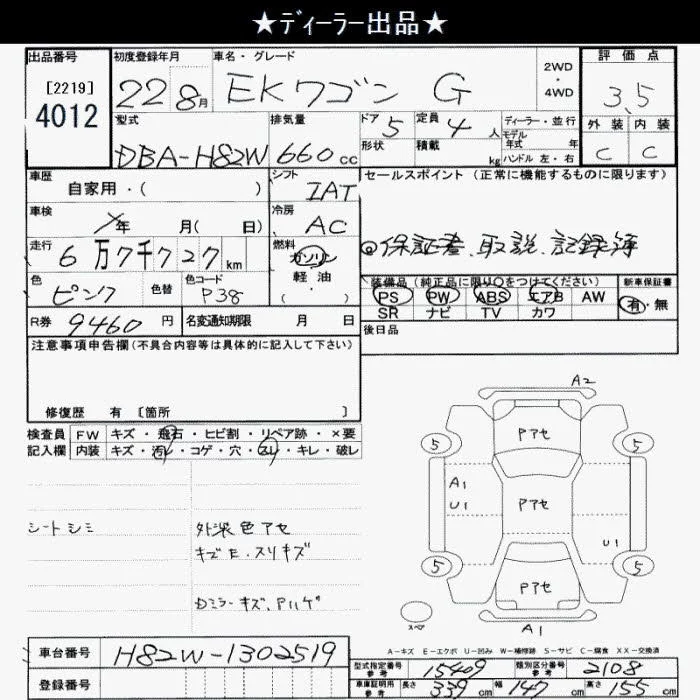 ★ディーラー出品★
出品番号
[2219]
4012
初度登録年月
22 8月
車名・グレード
EKワゴン G
2WD
・
4WD
評価点
3.5
外装 内装
C C
型式
DBA-H82W
排気量
660 cc
ドア 5
形状
定員 4 人
積載 kg
ディーラー・並行
モデル
年式 年
ハンドル 左・右
車歴
自家用・( )
シフト
IAT
セールスポイント (正常に機能するものに限ります)
◎保証書、取説、記録簿
車検
年 月( 日)
冷房
AC
走行
6万7千727km
燃料
ガソリン
軽・油
( ・ )
色
ピンク
色替
色コード
P38
装備品 (純正品に限り○をつけてください)
PS PW ABS エアB AW
SR ナビ TV カワ
新車保証書
有・無
R券 9460円
名変通知期限 月 日
後日品
注意事項申告欄(不具合内容等は具体的に記入して下さい)
修復歴 有 [箇所 ]
検査員
記入欄
FW キズ・飛石・ヒビ割・リペア跡・×要
内装 キズ・汚レ・コゲ・穴・スレ・キレ・破レ
シートシミ
外装色アセ
キズE・スリキズ
Dミラーキズ、Pハゲ
A2
Pアセ
5 5
A1
U1
Pアセ
U1
5 5
Pアセ
スペア
A1
A-キズ E-エクボ U-凹み W-補修跡 S-サビ C-腐食 XX-交換済
車台番号 H82W-1302519
登録番号
型式指定番号
参考
15409
類別区分番号
参考
2108
車庫証明用
参考
長さ 339 cm 幅 147 cm 高さ 155 cm